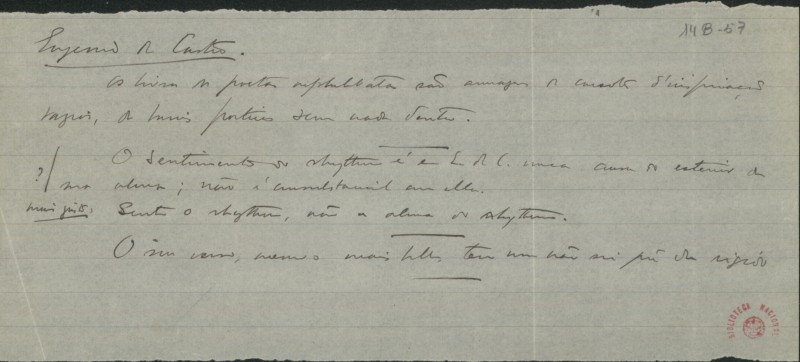 14B-57
Eugenio de Castro.
Os livros dos poetas são armazens de d'inspiração
vazios, de sem nada dentro.
O sentimento do rhythmo é em E. de C. uma cousa do exterior da
? sua alma; não é consubstancial com ella.
mais justo. Sente o rhythmo, não a alma do rhythmo.
O seu verso, mesmo o mais bello, tem um não sei quê de rigido
BIBLIOTECA NACIONAL